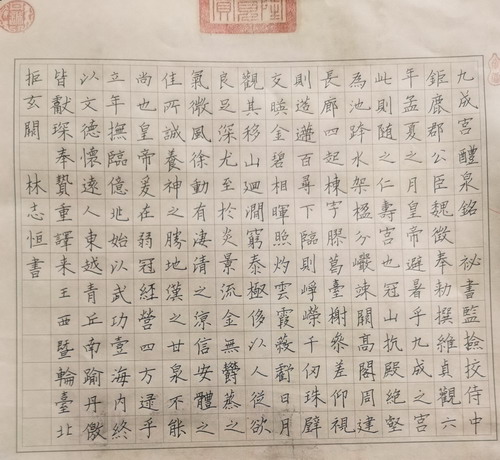 九成宮醴泉銘 祕書監撿挍侍中
鉅鹿郡公臣魏徵奉勅撰維貞觀六
年孟夏之月皇帝避暑乎九成之宮
此則随之仁壽宮也冠山抗殿絕壑
為池跨水架楹分巗竦闕高閣周建
長廊四起棟宇膠葛臺榭參差仰視
則迢遰百尋下臨則崢嶸千仞珠璧
交暎金碧相暉照灼雲霞蔽虧日月
觀其移山迴澗窮泰極侈以人從欲
良足深尤至於炎景流金無欝蒸之
氣微風徐動有淒清之涼信安體之
佳所誠養神之勝地漢之甘泉不能
尚也皇帝爰在弱冠經營四方逮乎
立年撫臨億兆始以武功壹海內終
以文德懷遠人東越青丘南踰丹儌
皆獻琛奉贄重譯来王西曁輪臺北
拒玄闕 林志恒書